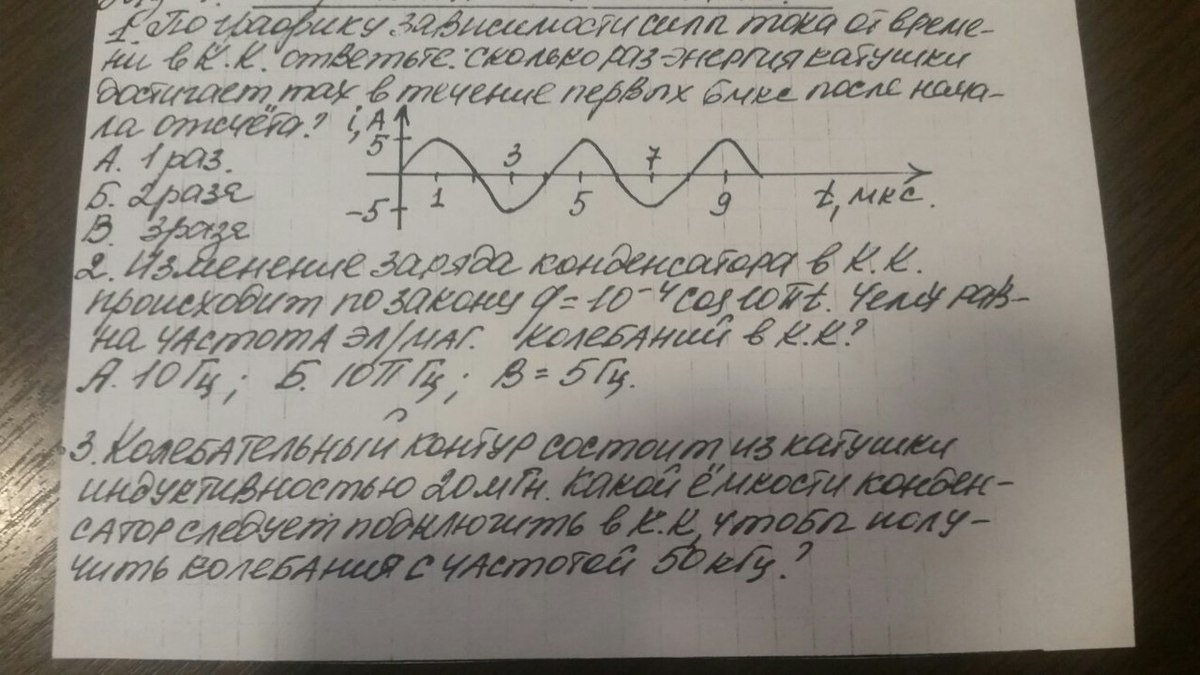 1. По графику зависимости силы тока от време-
ни в К.К. ответьте: сколько раз энергия катушки
достигает max в течение первых 6 мкс после нача-
ла отсчёта?
i, А
5
3
7
А. 1 раз.
Б. 2 раза
-5
1
5
9
t, мкс.
В. 3 раза
2. Изменение заряда конденсатора в К.К.
происходит по закону q = 10⁻⁴ cos 10πt. Чему рав-
на частота эл/маг. колебаний в К.К?
А. 10 Гц; Б. 10π Гц; В = 5 Гц.
3. Колебательный контур состоит из катушки
индуктивностью 20 мГн. Какой ёмкости конден-
сатор следует подключить в К.К, чтобы полу-
чить колебания с частотой 50 кГц?